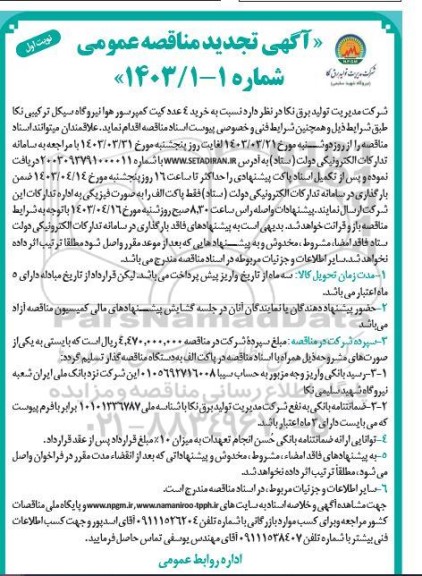 نوبت اول
« آگهی تجدید مناقصه عمومی
شماره ۱-۱۴۰۳/۱»
NPGM
شرکت مدیریت تولید برق نکا
شرکت مدیریت تولید برق نکا در نظر دارد نسبت به خرید ۴ عدد کیت کمپرسور هوا نیروگاه سیکل ترکیبی نکا
طبق شرایط ذیل و همچنین شرایط فنی و خصوصی پیوست اسناد مناقصه اقدام نماید. علاقمندان میتوانند اسناد
مناقصه را از روز دوشنبه مورخ ۱۴۰۳/۰۳/۲۱ لغایت روز پنجشنبه مورخ ۱۴۰۳/۰۳/۳۱ با مراجعه به سامانه
تدارکات الکترونیکی دولت (ستاد) به آدرس WWW.SETADIRAN.IR با شماره ۲۰۰۳۰۹۳۷۹۱۰۰۰۰۱۱ دریافت
نموده و پس از تکمیل اسناد پاکت پیشنهادی را حداکثر تا ساعت ۱۶ روز پنجشنبه مورخ ۱۴۰۳/۰۴/۱۴ ضمن
بارگذاری در سامانه تدارکات الکترونیکی دولت (ستاد) فقط پاکت الف را به صورت فیزیکی به اداره تدارکات این
شرکت ارسال نمایند. پیشنهادات واصله راس ساعت ۸،۳۰ صبح روز شنبه مورخ ۱۴۰۳/۰۴/۱۶ با توجه به شرایط
مناقصه باز و قرائت خواهد شد. بدیهی است به پیشنهادهای فاقد بارگذاری در سامانه تدارکات الکترونیکی دولت
ستاد فاقد امضاء، مشروط ، مخدوش و به پیشنهادهایی که بعد از موعد مقرر واصل شود مطلقا ترتیب اثر داده
نخواهد شد. سایر اطلاعات و جزئیات مربوطه در اسناد مناقصه مندرج می باشد.
۱-مدت زمان تحویل کالا: سه ماه از تاریخ واریز پیش پرداخت می باشد. لیکن قرارداد از تاریخ مبادله دارای ۵
ماه اعتبار می باشد.
۲-حضور پیشنهاد دهندگان یا نمایندگان آنان در جلسه گشایش پیشنهادهای مالی کمیسیون مناقصه آزاد
می باشد
۳-سپرده شرکت در مناقصه : مبلغ سپرده شرکت در مناقصه ۴,۴۷۰,۰۰۰,۰۰۰ ریال است که بایستی به یکی از
صورت های مشروحه ذیل همراه با اسناد مناقصه در پاکت الف به دستگاه مناقصه گذار تسلیم گردد:
۱-۳-رسید بانکی واریز وجه مزبور به حساب سیبا ۰۱۰۵۶۹۲۷۱۶۰۰۸ این شرکت نزد بانک ملی ایران شعبه
نیروگاه شهید سلیمی نکا
۲-۳-ضمانتنامه بانکی به نفع شرکت مدیریت تولید برق نکا با شناسه ملی ۱۰۱۰۱۳۳۶۷۸۷ برابر با فرم پیوست
که می بایست دارای ۳ ماه اعتبار باشد.
۴-توانایی ارائه ضمانتنامه بانکی حسن انجام تعهدات به میزان ۱۰٪ مبلغ قرارداد پس از عقد قرارداد.
۵-به پیشنهادهای فاقد امضاء، مشروط، مخدوش و پیشنهاداتی که بعد از انقضاء مدت مقرر در فراخوان واصل
می شود، مطلقاً ترتیب اثر داده نخواهد شد.
۶-سایر اطلاعات و جزئیات مربوط، در اسناد مناقصه مندرج است.
جهت مشاهده آگهی و خلاصه اسناد به سایت های www.npgm.ir, www.namaniroo-tpph.ir و پایگاه ملی مناقصات
کشور مراجعه و برای کسب موارد بازرگانی با شماره تلفن ۰۹۱۱۱۵۲۶۲۰۴ آقای اسدپور و جهت کسب اطلاعات
فنی بیشتر با شماره تلفن ۰۹۱۱۱۵۳۸۴۰۷ آقای مهندس یوسفی تماس حاصل فرمایید.
اداره روابط عمومی